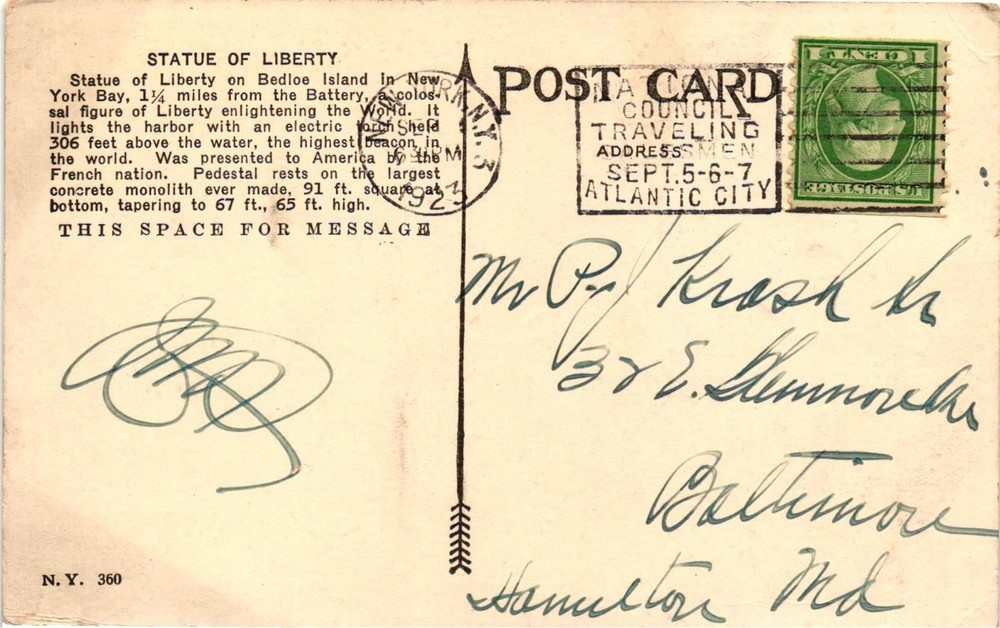 STATUE OF LIBERTY
Statue of Liberty on Bedloe Island in New
York Bay, 1¼ miles from the Battery, a colos-
sal figure of Liberty enlightening the World. It
lights the harbor with an electric torch held
306 feet above the water, the highest beacon in
the world. Was presented to America by the
French nation. Pedestal rests on the largest
concrete monolith ever made, 91 ft. square at
bottom, tapering to 67 ft., 65 ft. high.
THIS SPACE FOR MESSAGE
N. Y. 360
NEW YORK, N.Y. 3
SEP
1923
POST CARD
NATIONAL
COUNCIL
TRAVELING
SALESMEN
SEPT. 5-6-7
ATLANTIC CITY
ADDRESS
CENT 1
U.S. POSTAGE
Mr P. J Krash Sr
32 E. Glenmore
Baltimore
Hamilton Md